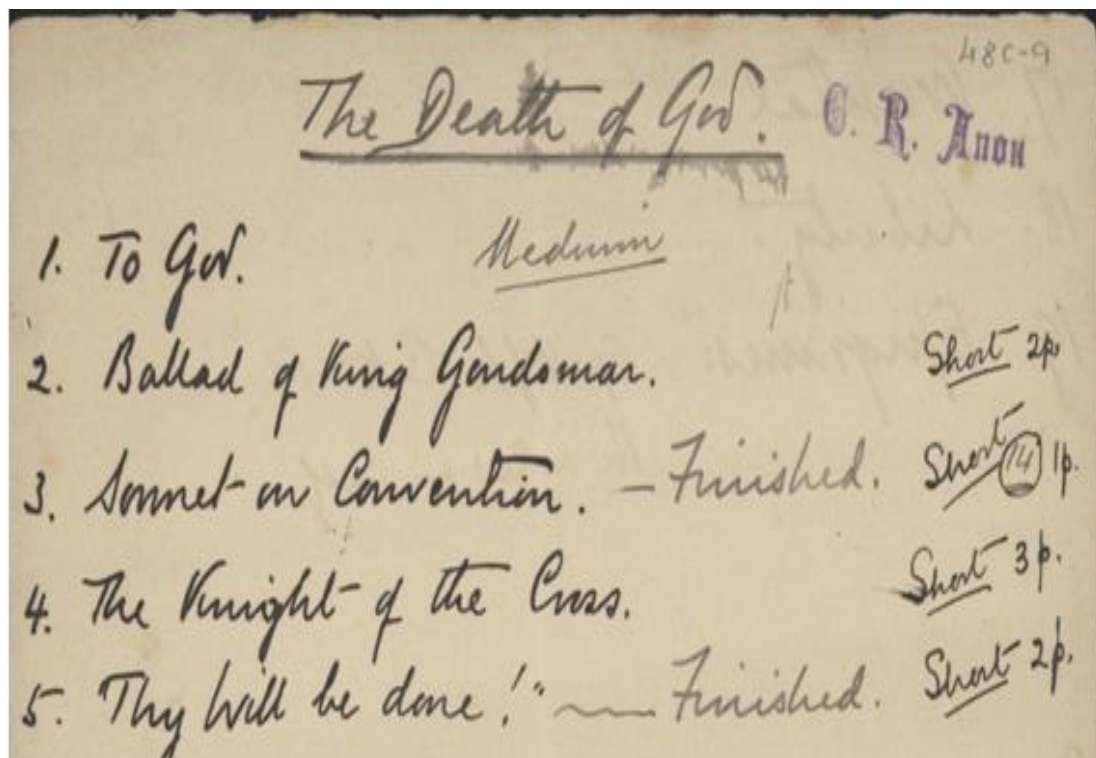 48C-9
The Death of God. C. R. Anon
1. To God. Medium
2. Ballad of King Gondomar. Short 2p
3. Sonnet on Convention. – Finished. Short (14) 1p.
4. The Knight of the Cross. Short 3p.
5. Thy Will be done!" — Finished. Short 2p.